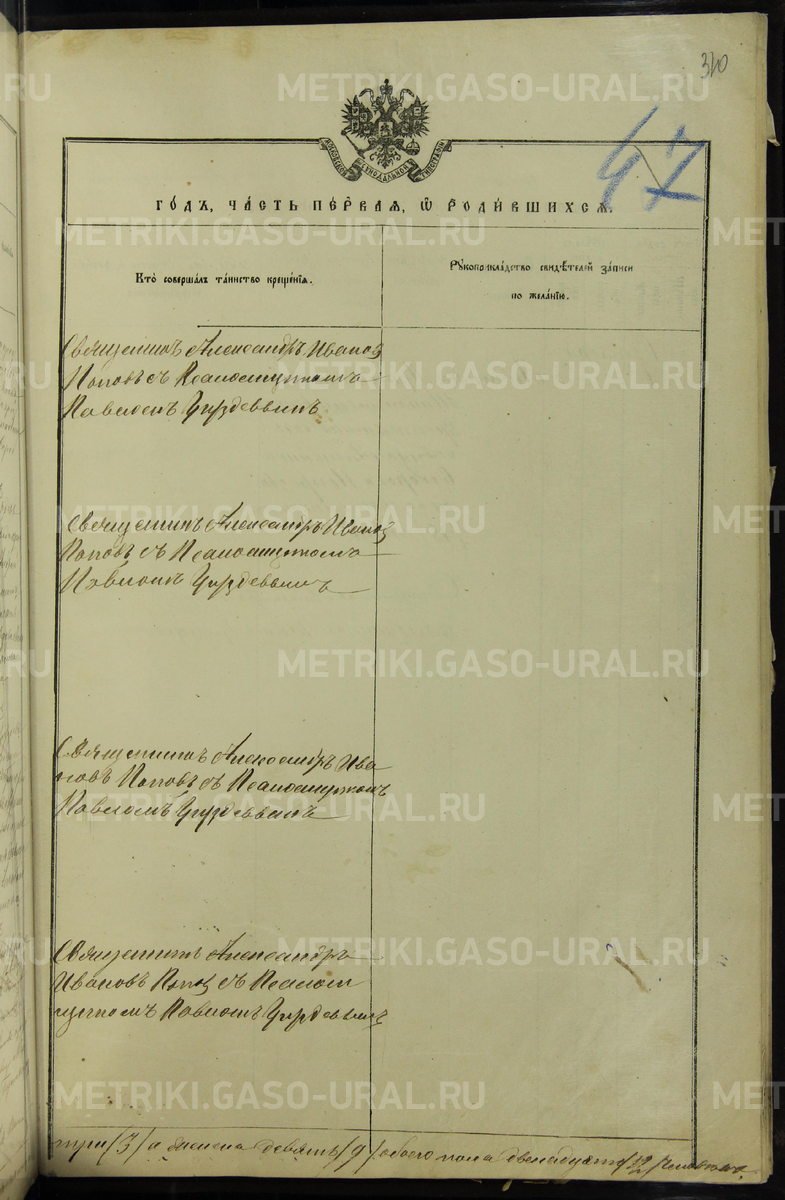 340
47
МОСКОВСКОЙ СѴНОДАЛЬНОЙ ТИПОГРАФІИ
го́дъ, ча́сть пе́рваѧ, ѡ҆ роди́вшихсѧ.
Кто̀ соверша́лъ та́инство креще́нїѧ.
Рꙋкоприкла́дство свидѣ́телей за́писи
по жела́нїю.
Священникъ Александръ Иванов
Поповъ съ Псаломщикомъ
Павломъ Груздевымъ
Священникъ Александръ Иванов
Поповъ съ Псаломщикомъ
Павломъ Груздевымъ
Священникъ Александръ Ива
новъ Поповъ съ Псаломщикомъ
Павломъ Груздевымъ
Священникъ Александръ
Ивановъ Попов съ Псалом
щикомъ Павломъ Груздевымъ
три /3/ а женска девять /9/ обоего пола двенадцать /12/ человекъ.
METRIKI.GASO-URAL.RU